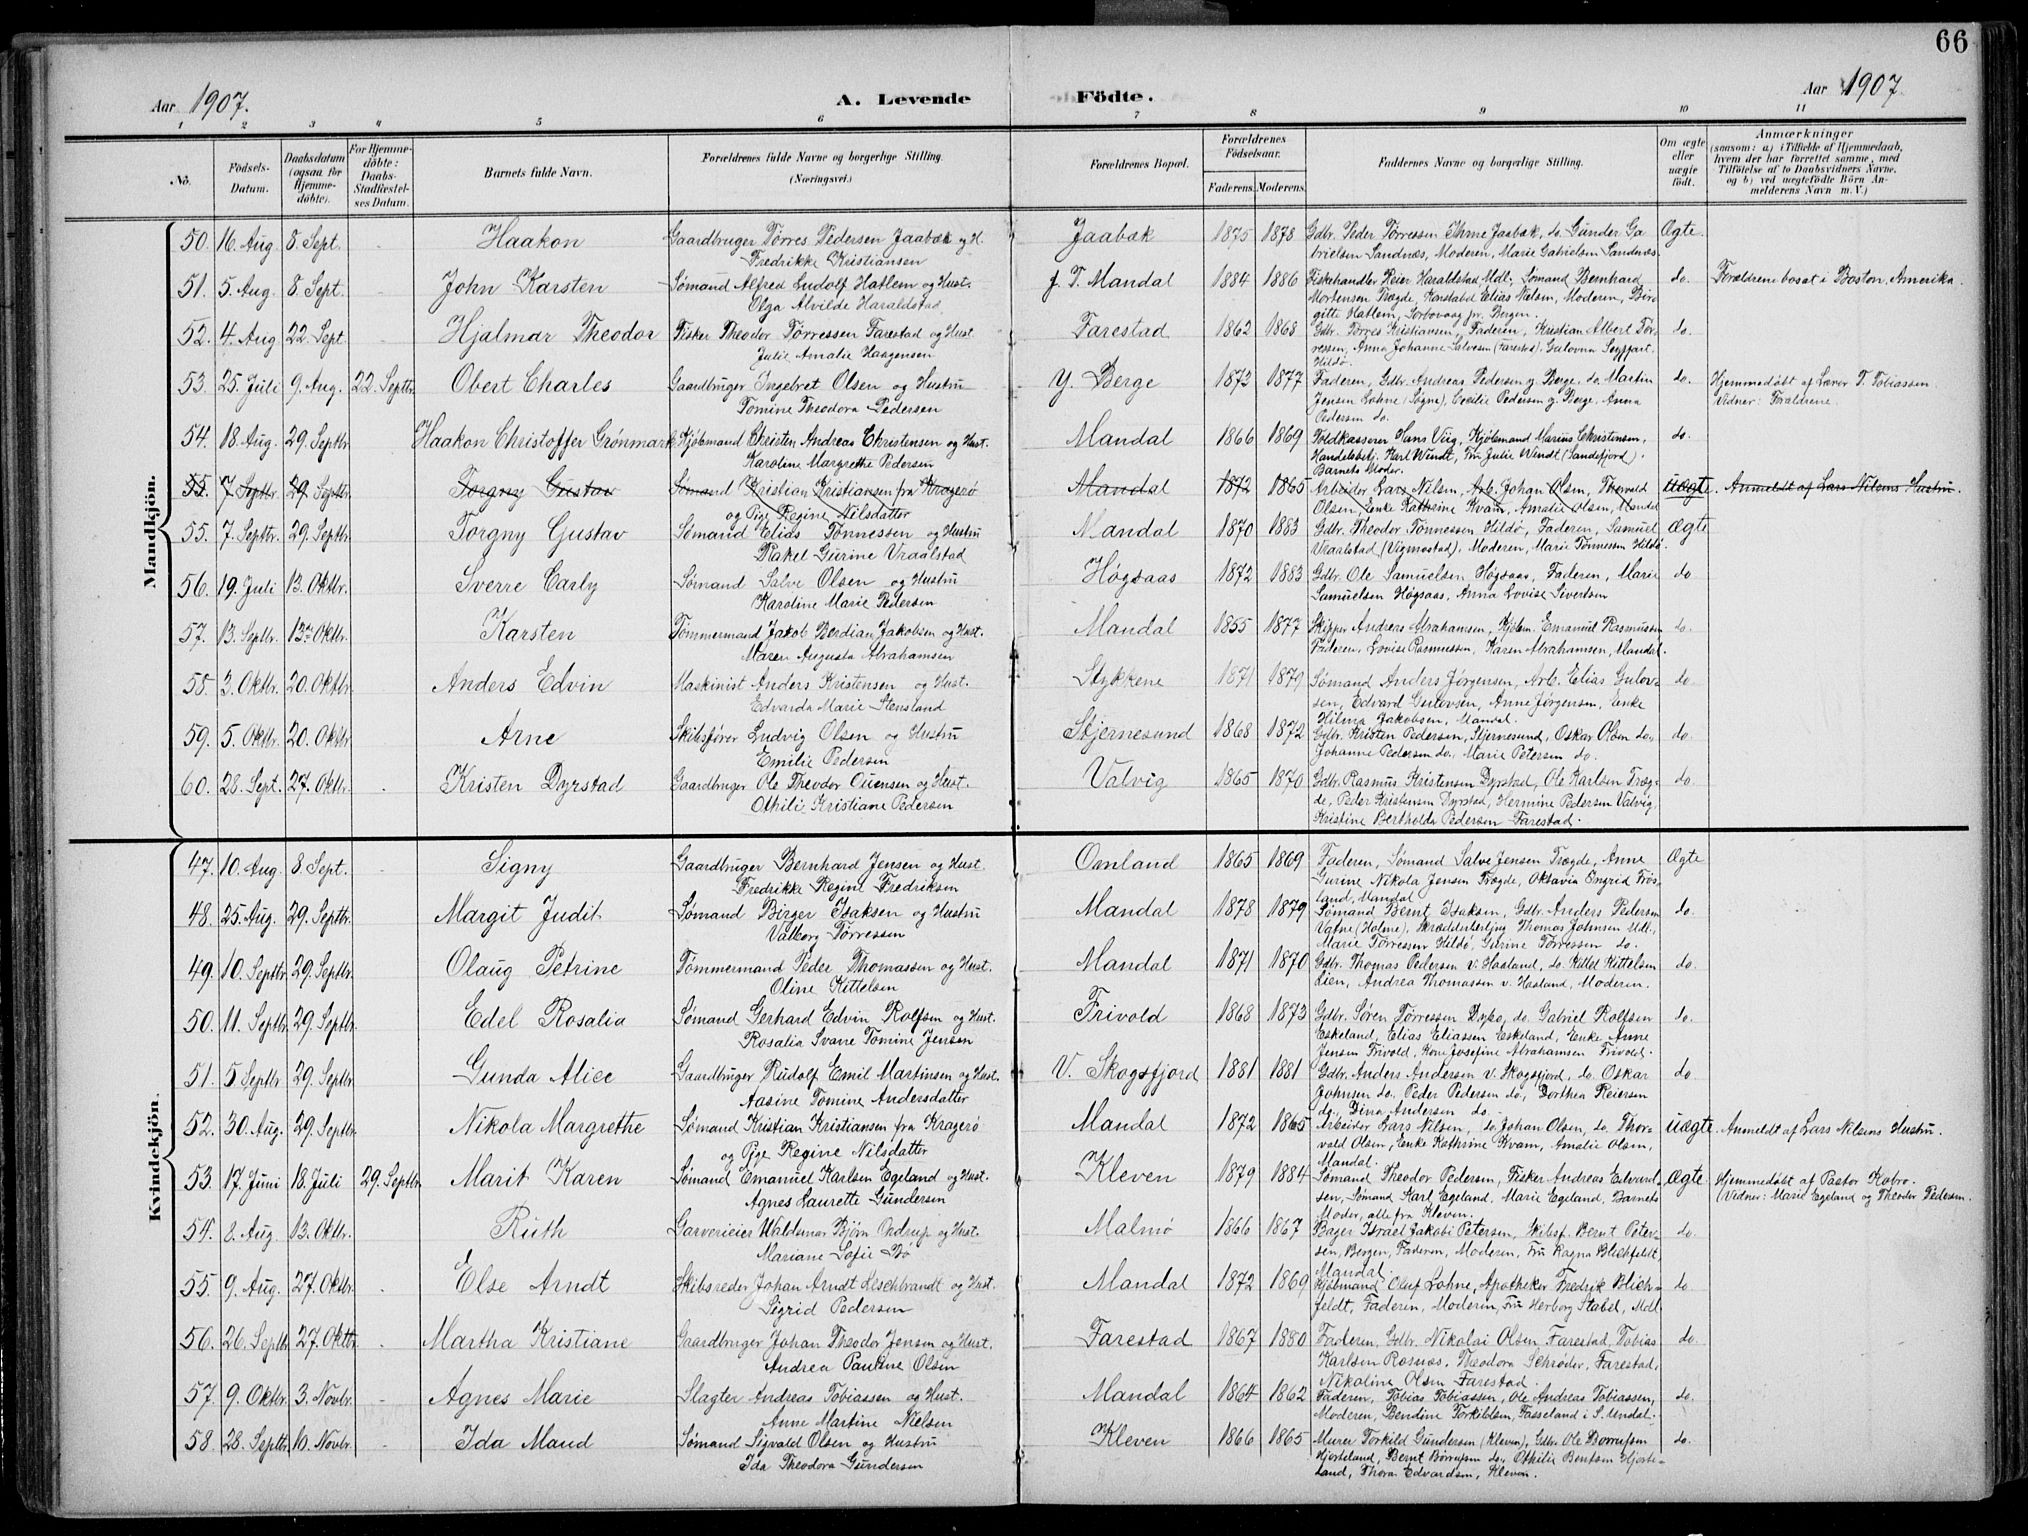 66
Aar 1907.
A. Levende Födte.
Aar 1907
1 2 3 4 5 6 7 8 9 10 11
No.
Födsels-Datum.
Daabsdatum (ogsaa for Hjemme-döbte).
For Hjemme-döbte: Daabs-Stadfæstel-ses Datum.
Barnets fulde Navn.
Forældrenes fulde Navne og borgerlige Stilling. (Næringsvei.)
Forældrenes Bopæl.
Forældrenes Födselsaar.
Faderens. Moderens.
Faddernes Navne og borgerlige Stilling.
Om ægte eller uægte födt.
Anmærkninger (saasom: a) i Tilfælde af Hjemmedaab, hvem der har forrettet samme, med Tilföielse af to Daabsvidners Navne. og b) ved uægtefödte Börn An-melderens Navn m. V.)
Mandkjön.
50. 16. Aug. 8. Sept. Haakon Gaardbruger Tørres Pedersen Jaabæk og H. Jaabæk 1875 1878 Gdbr. Peder Tørressen Ihme Jaabæk, do. Gunder Ga Ægte
Fredrikke Kristiansen brielsen Sandnæs, Moderen, Marie Gabrielsen Sandnæs.
51. 5. Aug. 8. Sept. John Karsten Sømand Alfred Ludolf Hatlem og Hust. f. T. Mandal 1884 1886 Fiskehandler Reier Haraldstad, Mdl., Sømand Bernhard do. Forældrene bosat i Boston, Amerika.
Olga Alvilde Haraldstad Mortensen Trægde, Konstabel Elias Nielsen, Moderen, Bir
gitte Hatlem, Sørbovaag pr. Bergen.
52. 4. Aug 22. Sept. Hjalmar Theodor Fisker Theodor Tørressen Farestad og Hust. Farestad 1862 1868 Gdbr. Tørres Kristiansen, Faderen, Kristian Albert Tør- do.
Julie Amalie Haagensen ressen, Anna Johanne Salvesen (Farestad), Gulovna Seyffart.
Hildø.
53. 25. Juli 9. Aug. 22. Septbr. Obert Charles Gaardbruger Ingebret Olsen og Hustru Y. Berge 1872 1877 Faderen, Gdbr. Andreas Pedersen y. Berge, do. Martin do. Hjemmedøbt af Lærer T. Tobiassen.
Tomine Theodora Pedersen Jensen Lohne (Søgne), Cecilie Pedersen y. Berge. Anna Vidner: Forældrene.
Pedersen do.
54. 18. Aug. 29. Septbr. Haakon Christoffer Grønmark Kjøbmand Christen Andreas Christensen og Hust. Mandal 1866 1869 Toldkasserer Hans Viig, Kjøbmand Marius Christensen, do.
Karoline Margrethe Pedersen Handelsbetj. Karl Windt, Fru Julie Windt (Sandefjord).
Barnets Moder.
55. 7 Septbr. 29 Septbr. Torgny Gustav Sømand Kristian Kristiansen fra Kragerø Mandal 1872 1865 Arbeider Lars Nilsen, Arb. Johan Olsen, Thorvald uægte. Anmeldt af Lars Nilsens Hustru.
og Pige Regine Nilsdatter Olsen, Enke Kathrine Kvam, Amalie Olsen, Mandal
55. 7. Septbr. 29. Septbr. Torgny Gustav Sømand Elias Tønnessen og Hustru Mandal 1870 1883 Gdbr. Theodor Tønnessen Hildø, Faderen, Samuel Ægte
Rakel Gurine Vraalstad Vraalstad (Vigmostad), Moderen, Marie Tønnesen Hildø.
56. 19. Juli 13. Oktbr. Sverre Carly Sømand Salve Olsen og Hustru Høgsaas 1872 1883 Gdbr. Ole Samuelsen Høgsaas, Faderen, Marie do
Karoline Marie Pedersen Samuelsen Høgsaas, Anna Lovise Sivertsen
57. 13. Septbr. 13de Oktbr. Karsten Tømmermand Jakob Berdian Jakobsen og Hust. Mandal 1855 1877 Skipper Andreas Abrahamsen, Kjøbm. Emanuel Rasmussen do.
Maren Augusta Abrahamsen Faderen, Lovise Rasmussen, Karen Abrahamsen, Mandal.
58. 3. Oktbr. 20. Oktbr. Anders Edvin Maskinist Anders Kristensen og Hust. Stykkene 1871 1879 Sømand Anders Jørgensen, Arb. Elias Gulov- do.
Edvarda Marie Stensland sen, Edvard Gulovsen, Anne Jørgensen, Enke
Hilma Jakobsen, Mandal.
59. 5. Oktbr. 20. Oktbr Arne Skibsfører Ludvig Olsen og Hustru Stjernesund 1868 1872 Gdbr. Kristen Pedersen, Stjernesund, Oskar Olsen do., do.
Emilie Pedersen Johanne Pedersen do., Marie Petersen do.
60. 28. Sept. 27. Oktbr. Kristen Dyrstad Gaardbruger Ole Theodor Ouensen og Hust. Valvig 1865 1870 Gdbr. Rasmus Kristensen Dyrstad, Ole Karlsen Træg- do.
Othilie Kristiane Pedersen de, Peder Kristensen Dyrstad, Hermine Pedersen Valvig,
Kristine Bertholda Pedersen Farestad.
Kvindekjön.
47. 10. Aug. 8. Sept. Signy Gaardbruger Bernhard Jensen og Hust. Omland 1865 1869 Faderen, Sømand Salve Jensen Trægde, Anne Ægte
Fredrikke Regine Fredriksen Gurine Nikola Jensen Trægde, Oktavia Engrid Frøs-
land, Mandal
48. 25. Aug. 29. Septbr. Margit Judit Sømand Birger Isaksen og Hustru Mandal 1878 1879 Sømand Bernt Isaksen, Gdbr. Anders Pedersen do.
Valborg Tørressen Vatne (Holme), Skrædderlærling Thomas Johnsen Mdl.,
Marie Tørressen Hildø, Gurine Tørressen do.
49. 10. Septbr. 29. Septbr. Olaug Petrine Tømmermand Peder Thomassen og Hust. Mandal 1871 1870 Gdbr. Thomas Pedersen v. Haaland, do. Kittel Kittelsen do.
Oline Kittelsen Lien, Andrea Thomassen v. Haaland, Moderen.
50. 11. Septbr. 29. Septbr. Edel Rosalia Sømand Gerhard Edvin Rolfsen og Hust. Frivold 1868 1873 Gdbr. Søren Tørressen Dybo, do. Gabriel Rolfsen do.
Rosalia Svane Tomine Jensen Eskeland, Elias Eliassen Eskeland, Enke Anne
Jensen Frivold, Kone Josefine Abrahamsen Frivold.
51. 5 Septbr 29. Septbr. Gunda Alice Gaardbruger Rudolf Emil Martinsen og Hust. V. Skogsfjord 1881 1881 Gdbr. Anders Andersen v. Skogsfjord, do. Oskar do
Aasine Tomine Andersdatter Johnsen do. Peder Pedersen do, Dorthea Reiersen
do., Dina Andersen do.
52. 30. Aug. 29. Septbr. Nikola Margrethe Sømand Kristian Kristiansen fra Kragerø Mandal 1872 1865 Arbeider Lars Nilsen, do. Johan Olsen, do. Thor- uægte. Anmeldt af Lars Nilsens Hustru.
og Pige Regine Nilsdatter vald Olsen, Enke Kathrine Kvam, Amalie Olsen,
Mandal.
53. 17. Juni 18. Juli 29. Septbr. Marit Karen Sømand Emanuel Karlsen Egeland og Hust. Kleven 1879 1884 Sømand Theodor Pedersen, Fisker Andreas Edvard- Ægte Hjemmedøbt af Pastor Kobro.
Agnes Laurette Gundersen sen, Sømand Karl Egeland, Marie Egeland, Barnets (Vidner: Marie Egeland og Theodor Pedersen.
Moder, alle fra Kleven.
54. 8. Aug. 13. Oktbr. Ruth Garverieier Waldemar Bjørn Ondrup og Hust. Malmø 1866 1867 Bager Israel Jakobi Petersen, Skibsf. Bernt Peter- do.
Mariane Sofie Bø sen, Bergen, Faderen, Moderen, Fru Ragna Blichfeldt,
Mandal.
55. 9. Aug. 27. Oktbr. Else Arndt Skibsreder Johan Arndt Heschbrandt og Hust. Mandal 1872 1869 Kjøbmand Oluf Lohne, Apotheker Fredrik Blich- do
Sigrid Pedersen feldt, Faderen, Moderen, Fru Herborg Stabel, Mdl
56. 26. Septbr 27. Oktbr. Martha Kristiane Gaardbruger Johan Theodor Jensen og Hust. Farestad 1867 1880 Faderen, Gdbr. Nikolai Olsen, Farestad, Tobias do.
Andrea Pauline Olsen Karlsen Rosnæs, Theodora Schrøder, Farestad,
Nikoline Olsen Farestad.
57. 9. Oktbr. 3. Novbr. Agnes Marie Slagter Andreas Tobiassen og Hust. Mandal 1864 1862 Faderen, Tobias Tobiassen, Ole Andreas Tobiassen, do.
Anne Martine Nielsen Moderen, Bendine Torkildsen, Fasseland i S. Undal.
58. 28. Septbr. 10. Novbr. Ida Maud Sømand Sigvald Olsen og Hustru Kleven 1866 1865 Murer Torkild Gundersen (Kleven), Gdbr. Ole Børrufsen do.
Ida Theodora Gundersen Hjorteland, Bernt Børrufsen do., Othilie Bentsen Hjorte-
land, Thora Edvardsen, Kleven.